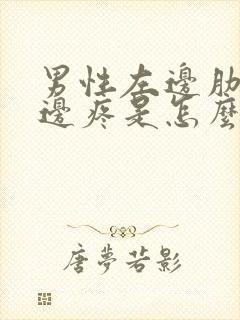 男性左邊肋
邊疼是怎麼
唐夢若影